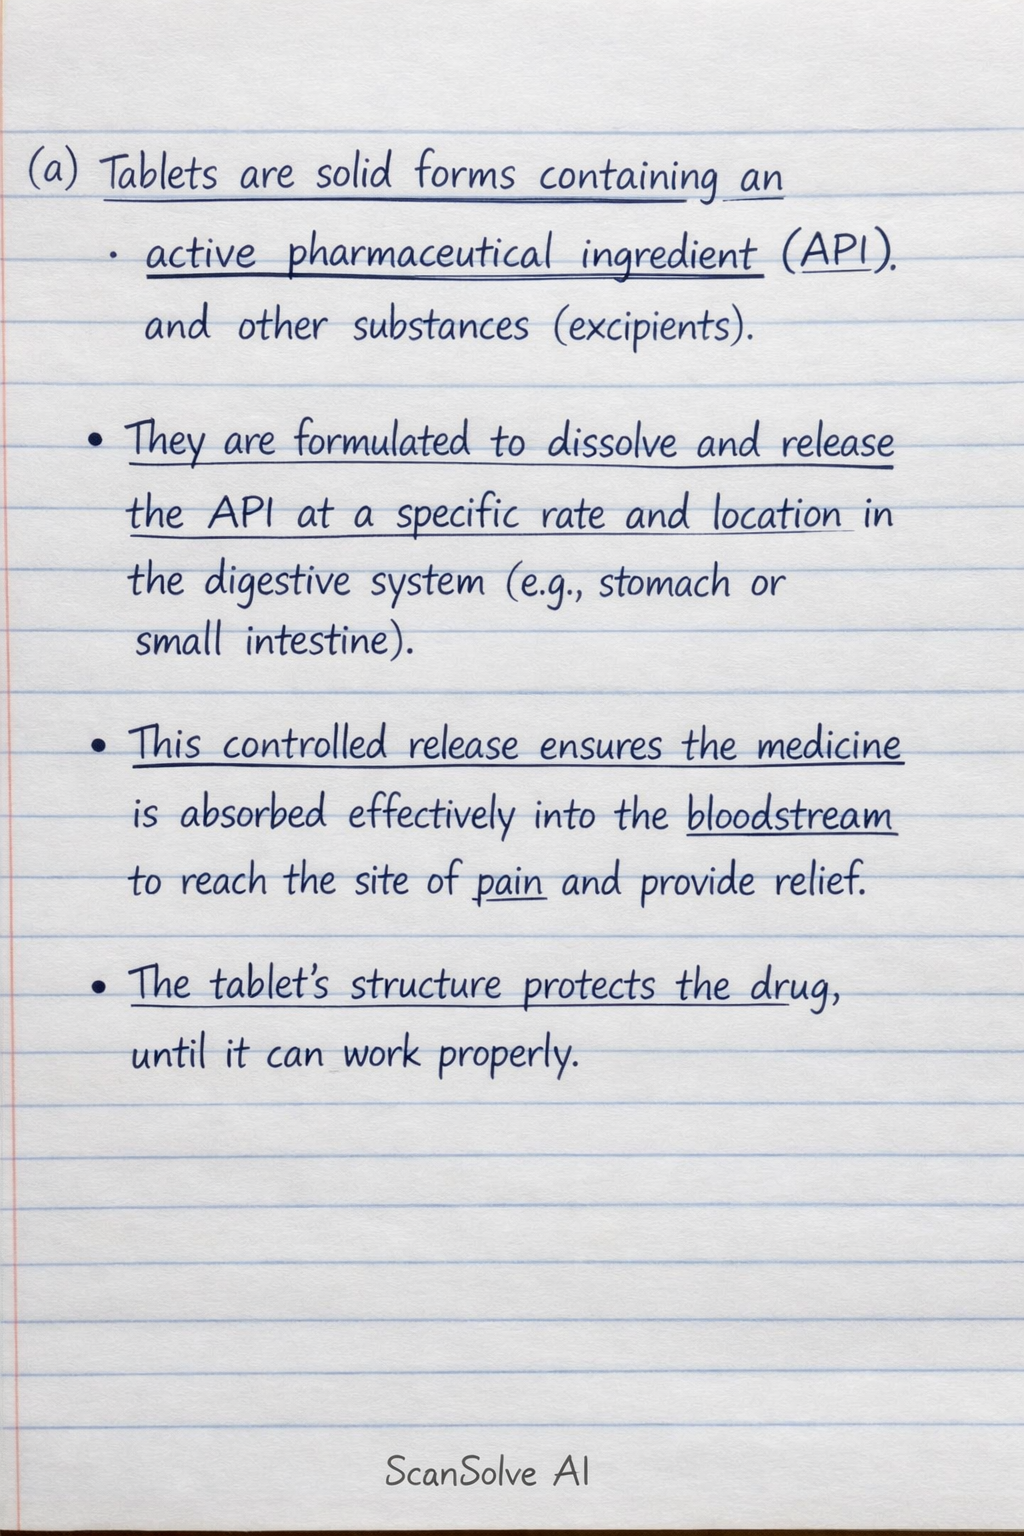 (a) Tablets are solid forms containing an
· active pharmaceutical ingredient (API).
and other substances (excipients).
• They are formulated to dissolve and release
the API at a specific rate and location in
the digestive system (e.g., stomach or
small intestine).
• This controlled release ensures the medicine
is absorbed effectively into the bloodstream
to reach the site of pain and provide relief.
• The tablet's structure protects the drug,
until it can work properly.
ScanSolve AI